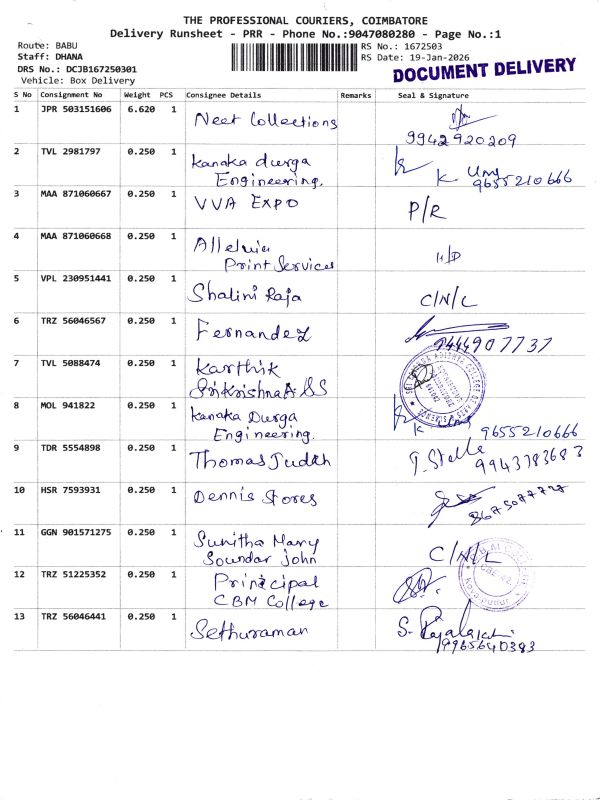 THE PROFESSIONAL COURIERS, COIMBATORE
Delivery Runsheet - PRR - Phone No.:9047080280 - Page No.:1
Route: BABU
Staff: DHANA
DRS No.: DCJB167250301
Vehicle: Box Delivery
RS No.: 1672503
RS Date: 19-Jan-2026
DOCUMENT DELIVERY
S No Consignment No Weight PCS Consignee Details Remarks Seal & Signature
1 JPR 503151606 6.620 1 Neet Collections
9942920209
2 TVL 2981797 0.250 1 Kanaka durga
Engineering. K Uma
9655210666
3 MAA 871060667 0.250 1 VVA EXPO P/R
4 MAA 871060668 0.250 1 Alleluia
Print Services H/D
5 VPL 230951441 0.250 1 Shalini Raja C/N/L
6 TRZ 56046567 0.250 1 Fernandez
9444907737
7 TVL 5088474 0.250 1 Karthik
8 MOL 941822 0.250 1 Kanaka Durga
Engineering. K Uma 9655210666
9 TDR 5554898 0.250 1 Thomas Judah T. Stella
9943783683
10 HSR 7593931 0.250 1 Dennis Stores
11 GGN 901571275 0.250 1 Sunitha Mary
Soundar john C/N/L
12 TRZ 51225352 0.250 1 Principal
CBM College
13 TRZ 56046441 0.250 1 Sethuraman S. Rajalakshmi
9965640383